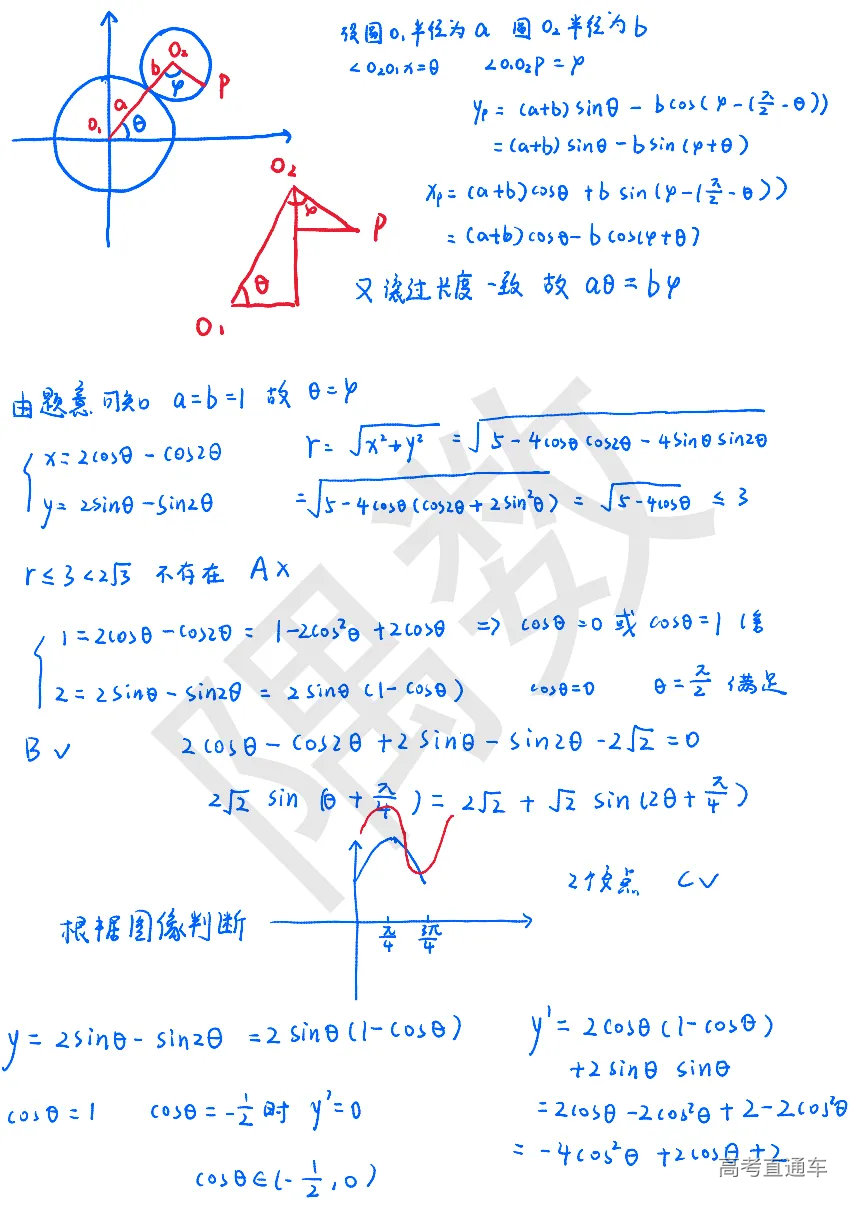 设圆O₁半径为a 圆O₂半径为b
∠O₂O₁x=θ ∠O₁O₂P=φ
O₂
b
φ
P
a
O₁
θ
y_P = (a+b)sinθ - bcos(φ-(π/2-θ))
=(a+b)sinθ-bsin(φ+θ)
x_P=(a+b)cosθ+bsin(φ-(π/2-θ))
=(a+b)cosθ-bcos(φ+θ)
O₂
φ
P
θ
O₁
又滚过长度一致 故 aθ=bφ
由题意可知 a=b=1 故 θ=φ
{ x=2cosθ-cos2θ
y=2sinθ-sin2θ
r=√(x²+y²) =√(5-4cosθcos2θ-4sinθsin2θ)
=√(5-4cosθ(cos2θ+2sin²θ)) = √(5-4cosθ) ≤ 3
r≤3<2√3 不存在 A×
{ 1=2cosθ-cos2θ= 1-2cos²θ+2cosθ => cosθ=0或cosθ=1(舍
2=2sinθ-sin2θ = 2sinθ(1-cosθ) cosθ=0 θ=π/2 满足
B√ 2cosθ-cos2θ+2sinθ-sin2θ-2√2=0
2√2 sin(θ+π/4)=2√2+√2 sin(2θ+π/4)
2个交点 C√
根据图像判断
π/4 3π/4
y=2sinθ-sin2θ =2sinθ(1-cosθ)
y'=2cosθ(1-cosθ)
+2sinθ sinθ
cosθ=1 cosθ=-1/2时 y'=0
=2cosθ-2cos²θ+2-2cos²θ
=-4cos²θ+2cosθ+2
cosθ∈(-1/2,0)
高考直通车
隅数